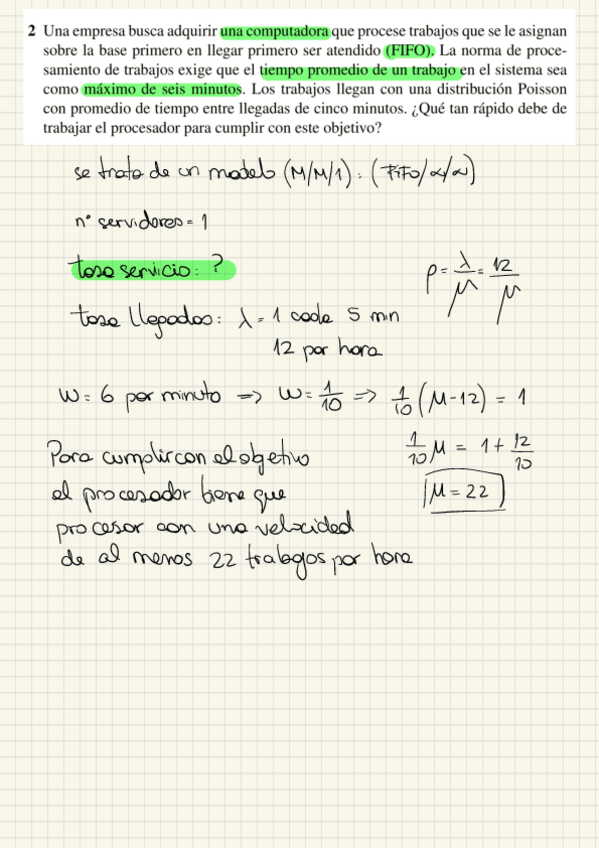 2 Una empresa busca adquirir una computadora que procese trabajos que se le asignan
sobre la base primero en llegar primero ser atendido (FIFO). La norma de proce-
samiento de trabajos exige que el tiempo promedio de un trabajo en el sistema sea
como máximo de seis minutos. Los trabajos llegan con una distribución Poisson
con promedio de tiempo entre llegadas de cinco minutos. ¿Qué tan rápido debe de
trabajar el procesador para cumplir con este objetivo?
se trata de un modelo (M/M/1): (FiFo/∞/∞)
nº servidores = 1
tasa servicio: ?
ρ = λ/μ = 12/μ
tasa llegadas: λ = 1 cada 5 min
12 por hora
W = 6 por minuto => W = 1/10 => 1/10 (μ-12) = 1
1/10 μ = 1 + 12/10
μ = 22
Para cumplir con el objetivo
el procesador tiene que
procesar con una velocidad
de al menos 22 trabajos por hora